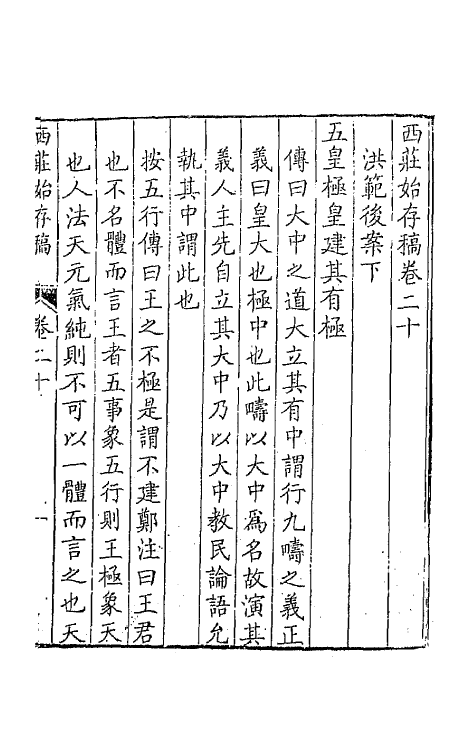 西莊始存稿卷二十
洪範後案下
五皇極皇建其有極
傳曰大中之道大立其有中謂行九疇之義正
義曰皇大也極中也此疇以大中爲名故演其
義人主先自立其大中乃以大中教民論語允
執其中謂此也
按五行傳曰王之不極是謂不建鄭注曰王君
也不名體而言王者五事象五行則王極象天
也人法天元氣純則不可以一體而言之也天
西莊始存稿 卷二十 一